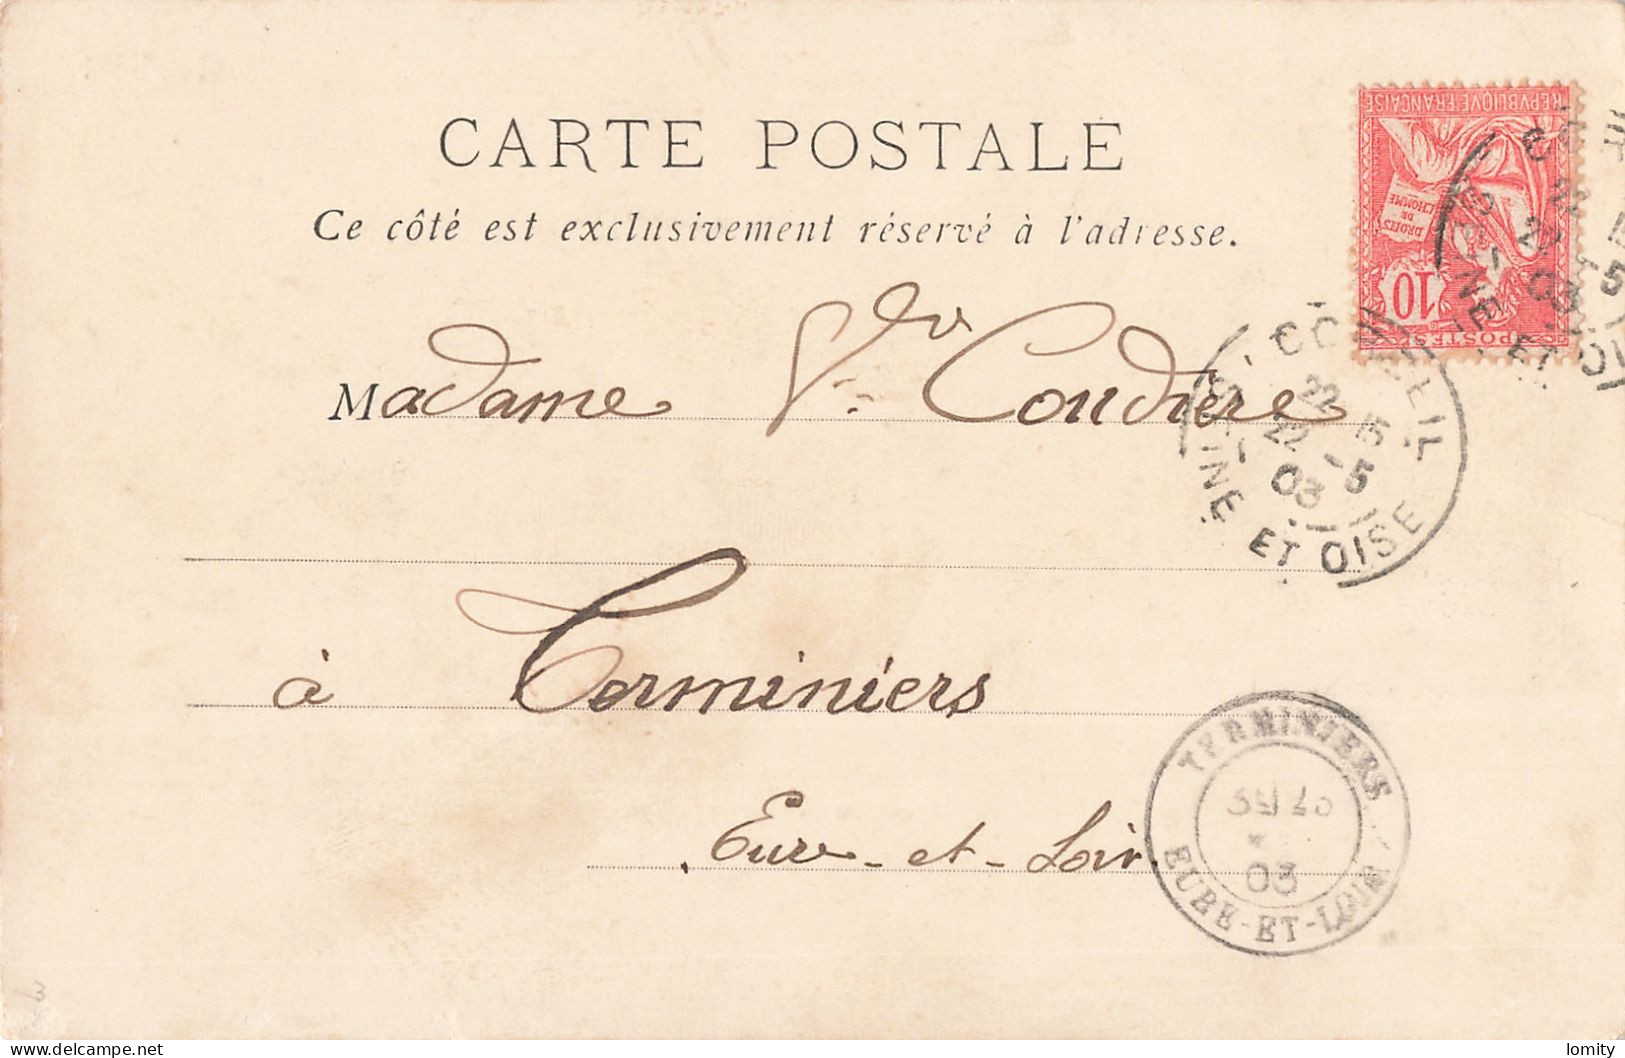 CARTE POSTALE
Ce côté est exclusivement réservé à l'adresse.
REPVBLIQVE FRANÇAISE
DROITS
DE
L'HOMME
10
POSTES
Madame Vve Coudière
CORBEIL
22 15
22 -5
03
SEINE ET OISE
à Terminiers
Eure-et-Loir
TERMINIERS
03
EURE-ET-LOIR
3
delcampe.net
lomity